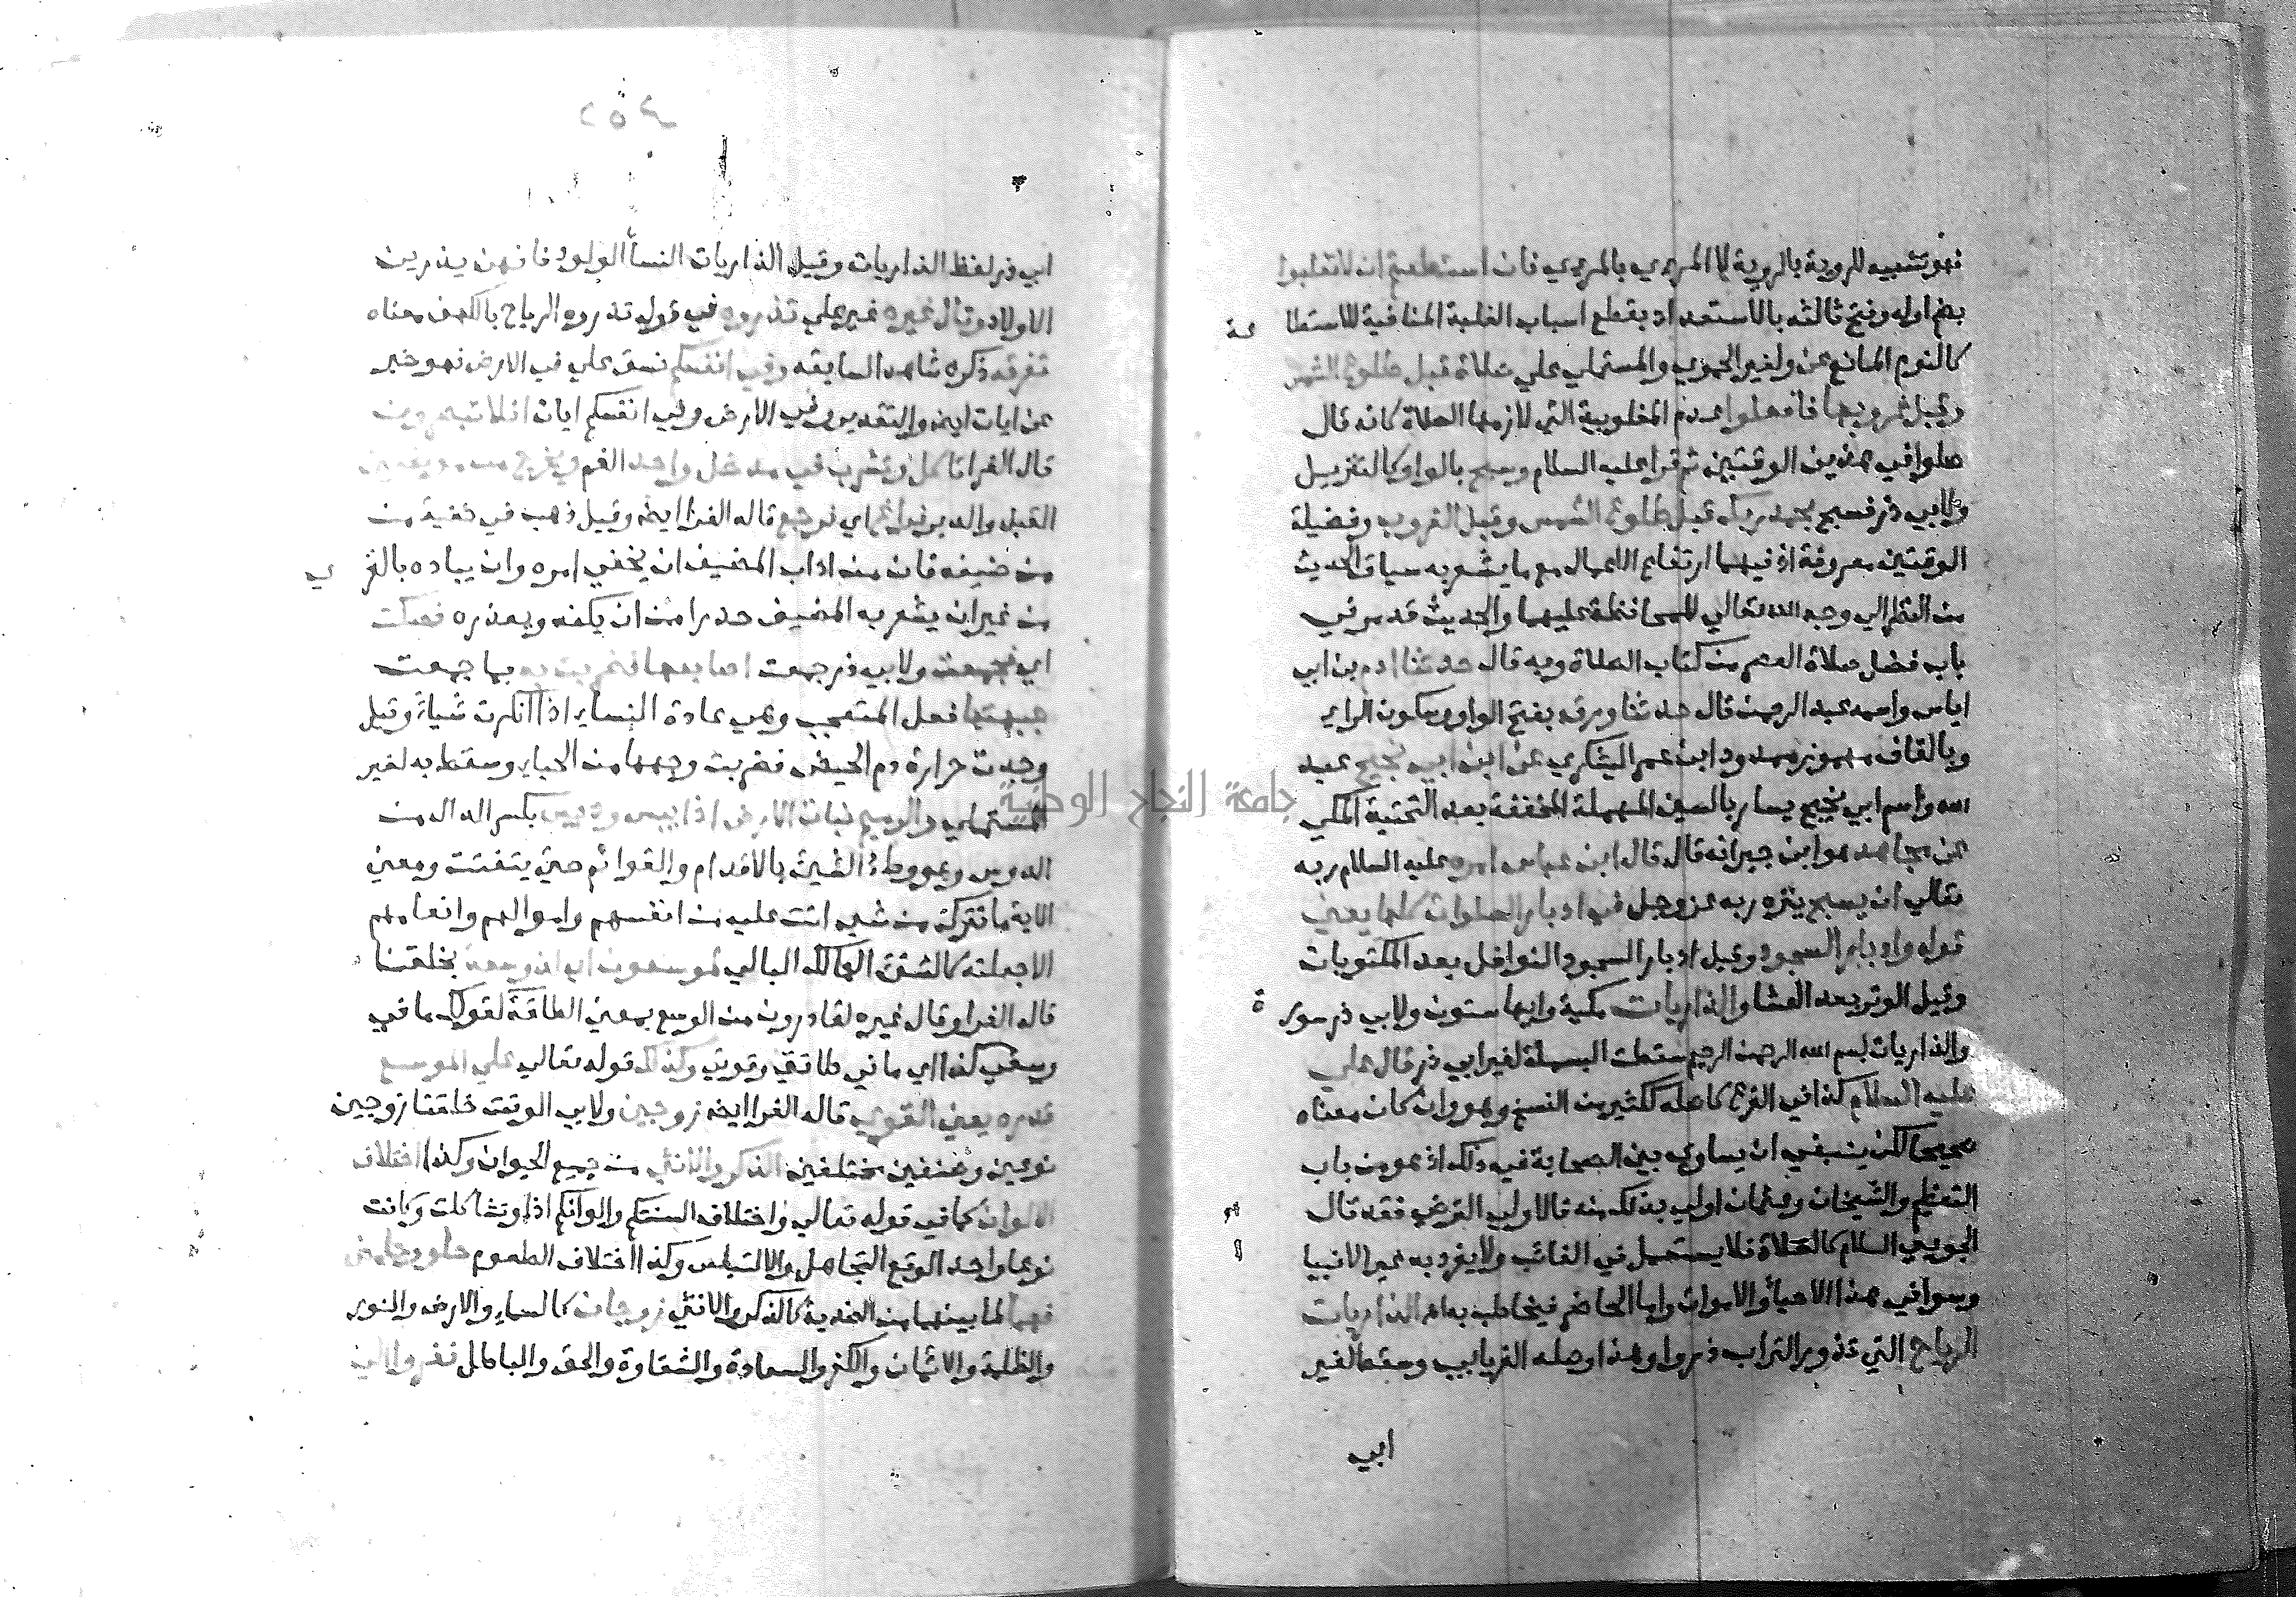 فهو تشبيه للروية بالروية لا المريي بالمريي فان استطعتم ان لا تغلبوا
بضم اوله وفتح ثالثه بالاستعداد بقطع اسباب الغلبة المنافية للاستطا
عة
كالنوم المانع عن ولغير الحموي والمستملي علي صلاة قبل طلوع الشمس
وقبل غروبها فافعلوا عدم المغلوبية التي لازمها الصلاة كانه قال
صلوا في هذين الوقتين ثم قرا عليه السلام وسبح بالواو كالتنزيل
ولابي ذر فسبح بحمد ربك قبل طلوع الشمس وقبل الغروب وفضيلة
الوقتين معروفة اذ فيهما ارتفاع الاعمال مع ما يشعر به سياق الحديث
من النظر الي وجه الله تعالي للمحافظة عليهما والحديث قد مر في
باب فضل صلاة العصر من كتاب الصلاة وبه قال حدثنا ادم بن ابي
اياس واسمه عبد الرحمن قال حدثنا ورقه بفتح الواو وسكون الراي
وبالقاف مهموز ممدود ابن عمر اليشكري عن ابن ابي نجيح عبد
الله واسم ابي نجيح يسار بالسين المهملة المخففة بعد التحتية المكي
عن مجاهد هو ابن جبر انه قال قال ابن عباس امره عليه السلام ربه
تعالي ان يسبح ينزه ربه عز وجل في ادبار الصلوات كلها يعني
قوله وادبار السجود وقيل ادبار السجود النوافل بعد المكتوبات
وقيل الوتر بعد العشا والذاريات مكية وايها ستون ولابي ذر سور
ة
والذاريات بسم الله الرحمن الرحيم سقطت البسملة لغير ابي ذر قال علي
عليه السلام كذا في الفرع كاصله ككثير من النسخ وهو وان كان معناه
صحيحا لكن ينبغي ان يساوي بين الصحابة فيه ذلك اذ هو من باب
التعظيم والشيخان وعثمان اولي بذلك منه فالاولي الترضي فقد قال
الجويني السلام كالصلاة فلا يستعمل في الغائب ولا يفرد به غير الانبيا
وسوا في هذا الاحيا والاموات واما الحاضر فيخاطب به اهـ الذاريات
الرياح التي تذور التراب ذروا وهذا وصله الفريابي وسقط لغير
ابي
٢٥٤
ابي ذر لفظ الذاريات وقيل الذاريات النسا الولود فانهن يذرين
الاولاد وقال غيره غير علي تذروه في قوله تذروه الرياح بالكهف معناه
تفرقه ذكره شاهدا لسابقه وفي انفسكم نسق علي في الارض فهو خبر
عن ايات ايضا والتقدير وفي الارض وفي انفسكم ايات افلا تبصرون
قال الفرا تاكل وتشرب في مدخل واحد الفم ويخرج من موضعين
القبل والدبر فراغ اي فرجع قاله الفرا ايضا وقيل ذهب في خفية من
من ضيفه فان من اداب المضيف ان يخفي امره وان يباده بالقر
ي
من غير ان يشعر به المضيف حدرا من ان يكفه ويعذره فصكت
اي فجمعت ولابي ذر جمعت اصابعها فضربت به بما جمعت
جبهتها فعل المتعجب وهي عادة النساء اذا انكرت شياء وقيل
وجدت حرارة دم الحيض فضربت وجهها من الحياء وسقط به لغير
المستملي والرميم نبات الارض اذا يبس وديس بكسر الدال من
الدوس وهو وطء الشيء بالاقدام والقوائم حتي يتفتت ومعني
الاية ما تترك من شيء اتت عليه من انفسهم واموالهم وانعامهم
الا جعلته كالشيء الهالك البالي لموسعون اي لذو سعة بخلقنا
قاله الفرا وقال غيره لقادرون من الوسع بمعني الطاقة لقولك ما في
وسعي كذا اي ما في طاقتي وقوتي وكذلك قوله تعالي علي الموسع
قدره يعني القوي قاله الفرا ايضا زوجين ولابي الوقت خلقنا زوجين
نوعين وصنفين مختلفين الذكر والانثي من جميع الحيوان وكذا اختلاف
الالوان كما في قوله تعالي واختلاف السنتكم والوانكم اذ لو تشاكلت وكانت
نوعا واحدا لوقع التجاهل والالتباس وكذا اختلاف الطعوم حلو وحامض
فهما لما بينهما من الضدية كالذكر والانثي زوجان كالسماء والارض والنور
والظلمة والايمان والكفر والسعادة والشقاوة والحق والباطل ففروا الي
جامعة النجاح الوطنية